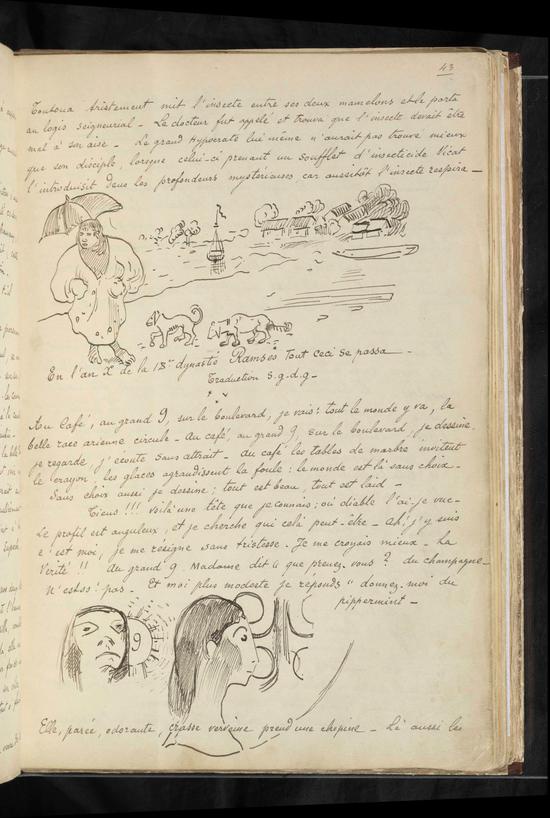 43
Toutoua tristement mit l'insecte entre ses deux mamelons et le porta
au logis seigneurial – Le docteur fut appelé et trouva que l'insecte devait être
mal à son aise – Le grand Hypocrate lui même n'aurait pas trouvé mieux
que son disciple, lorsque celui-ci prenant un soufflet d'insecticide Vicat
l'introduisit dans les profondeurs mystérieuses car aussitôt l'insecte respira –
En l'an X de la 18e dynastie Ramsès tout ceci se passa –
Traduction s.g.d.g –
Au Café, au grand 9, sur le boulevard, je vais: tout le monde y va, la
belle race arienne circule – Au café, au grand 9, sur le boulevard, je dessine,
je regarde, j'écoute sans attrait – Au café les tables de marbre invitent
le crayon, les glaces agrandissent la foule: le monde est là sans choix –
Sans choix aussi je dessine; tout est beau, tout est laid –
Tiens!!! Voilà une tête que je connais; où diable l'ai-je vue –
Le profil est anguleux, et je cherche qui celà peut-être – Ah! j'y suis
c'est moi, je me résigne sans tristesse. Je me croyais mieux – La
Vérité!! Au grand 9. Madame dit-il que prenez-vous? du champagne –
N'est-ce pas – Et moi plus modeste je réponds "donnez-moi du
pippermint –
9
Elle, parée, odorante, crasse verveine prend une chopine – Là aussi les